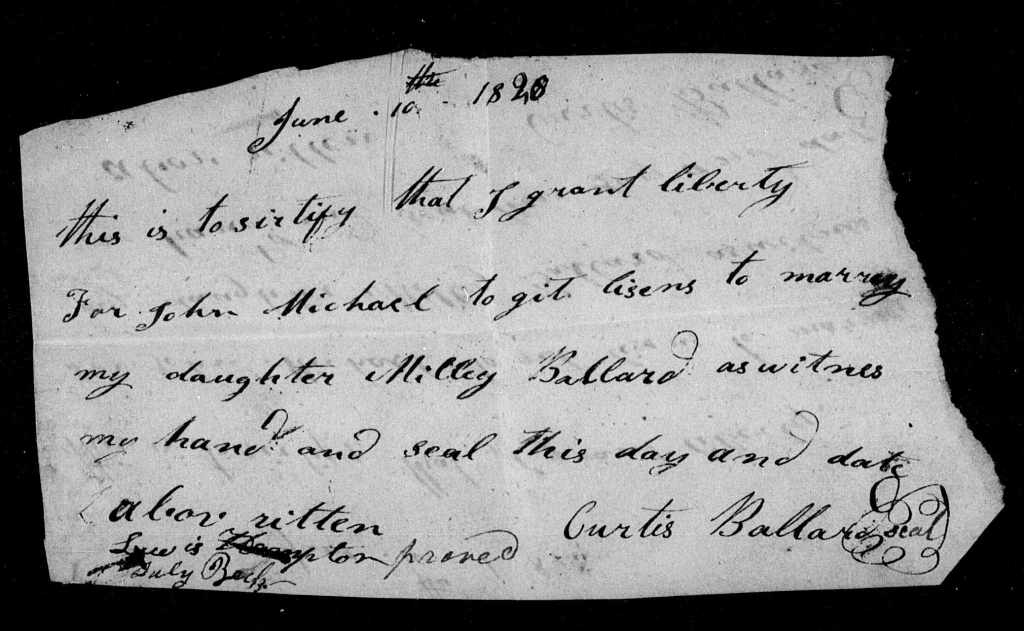 June 10th 1828
this is to sirtify that I grant liberty
For John Michael to git lisens to marrey
my daughter Milley Ballard as witnes
my hand and seal this day and date
abov ritten Curtis Ballard seal
Lewis proved